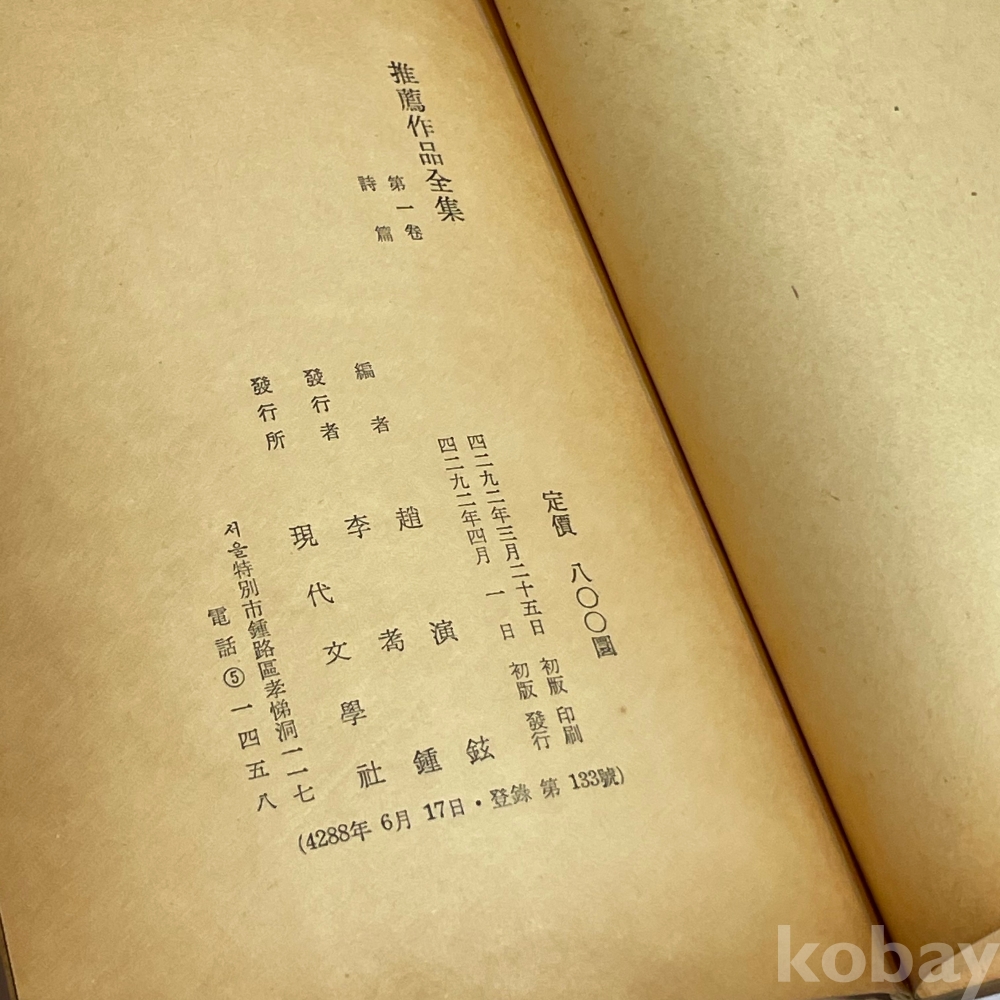 推薦作品全集
第一卷
詩篇
定價 八〇〇圜
四二九二年三月二十五日 初版 印刷
四二九二年四月 一 日 初版 發行
編者 趙演鉉
發行者 李耉鍾
發行所 現代文學社
서울特別市鍾路區孝悌洞一一七
電話⑤一四五八
(4288年 6月 17日・登錄 第 133號)
kobay